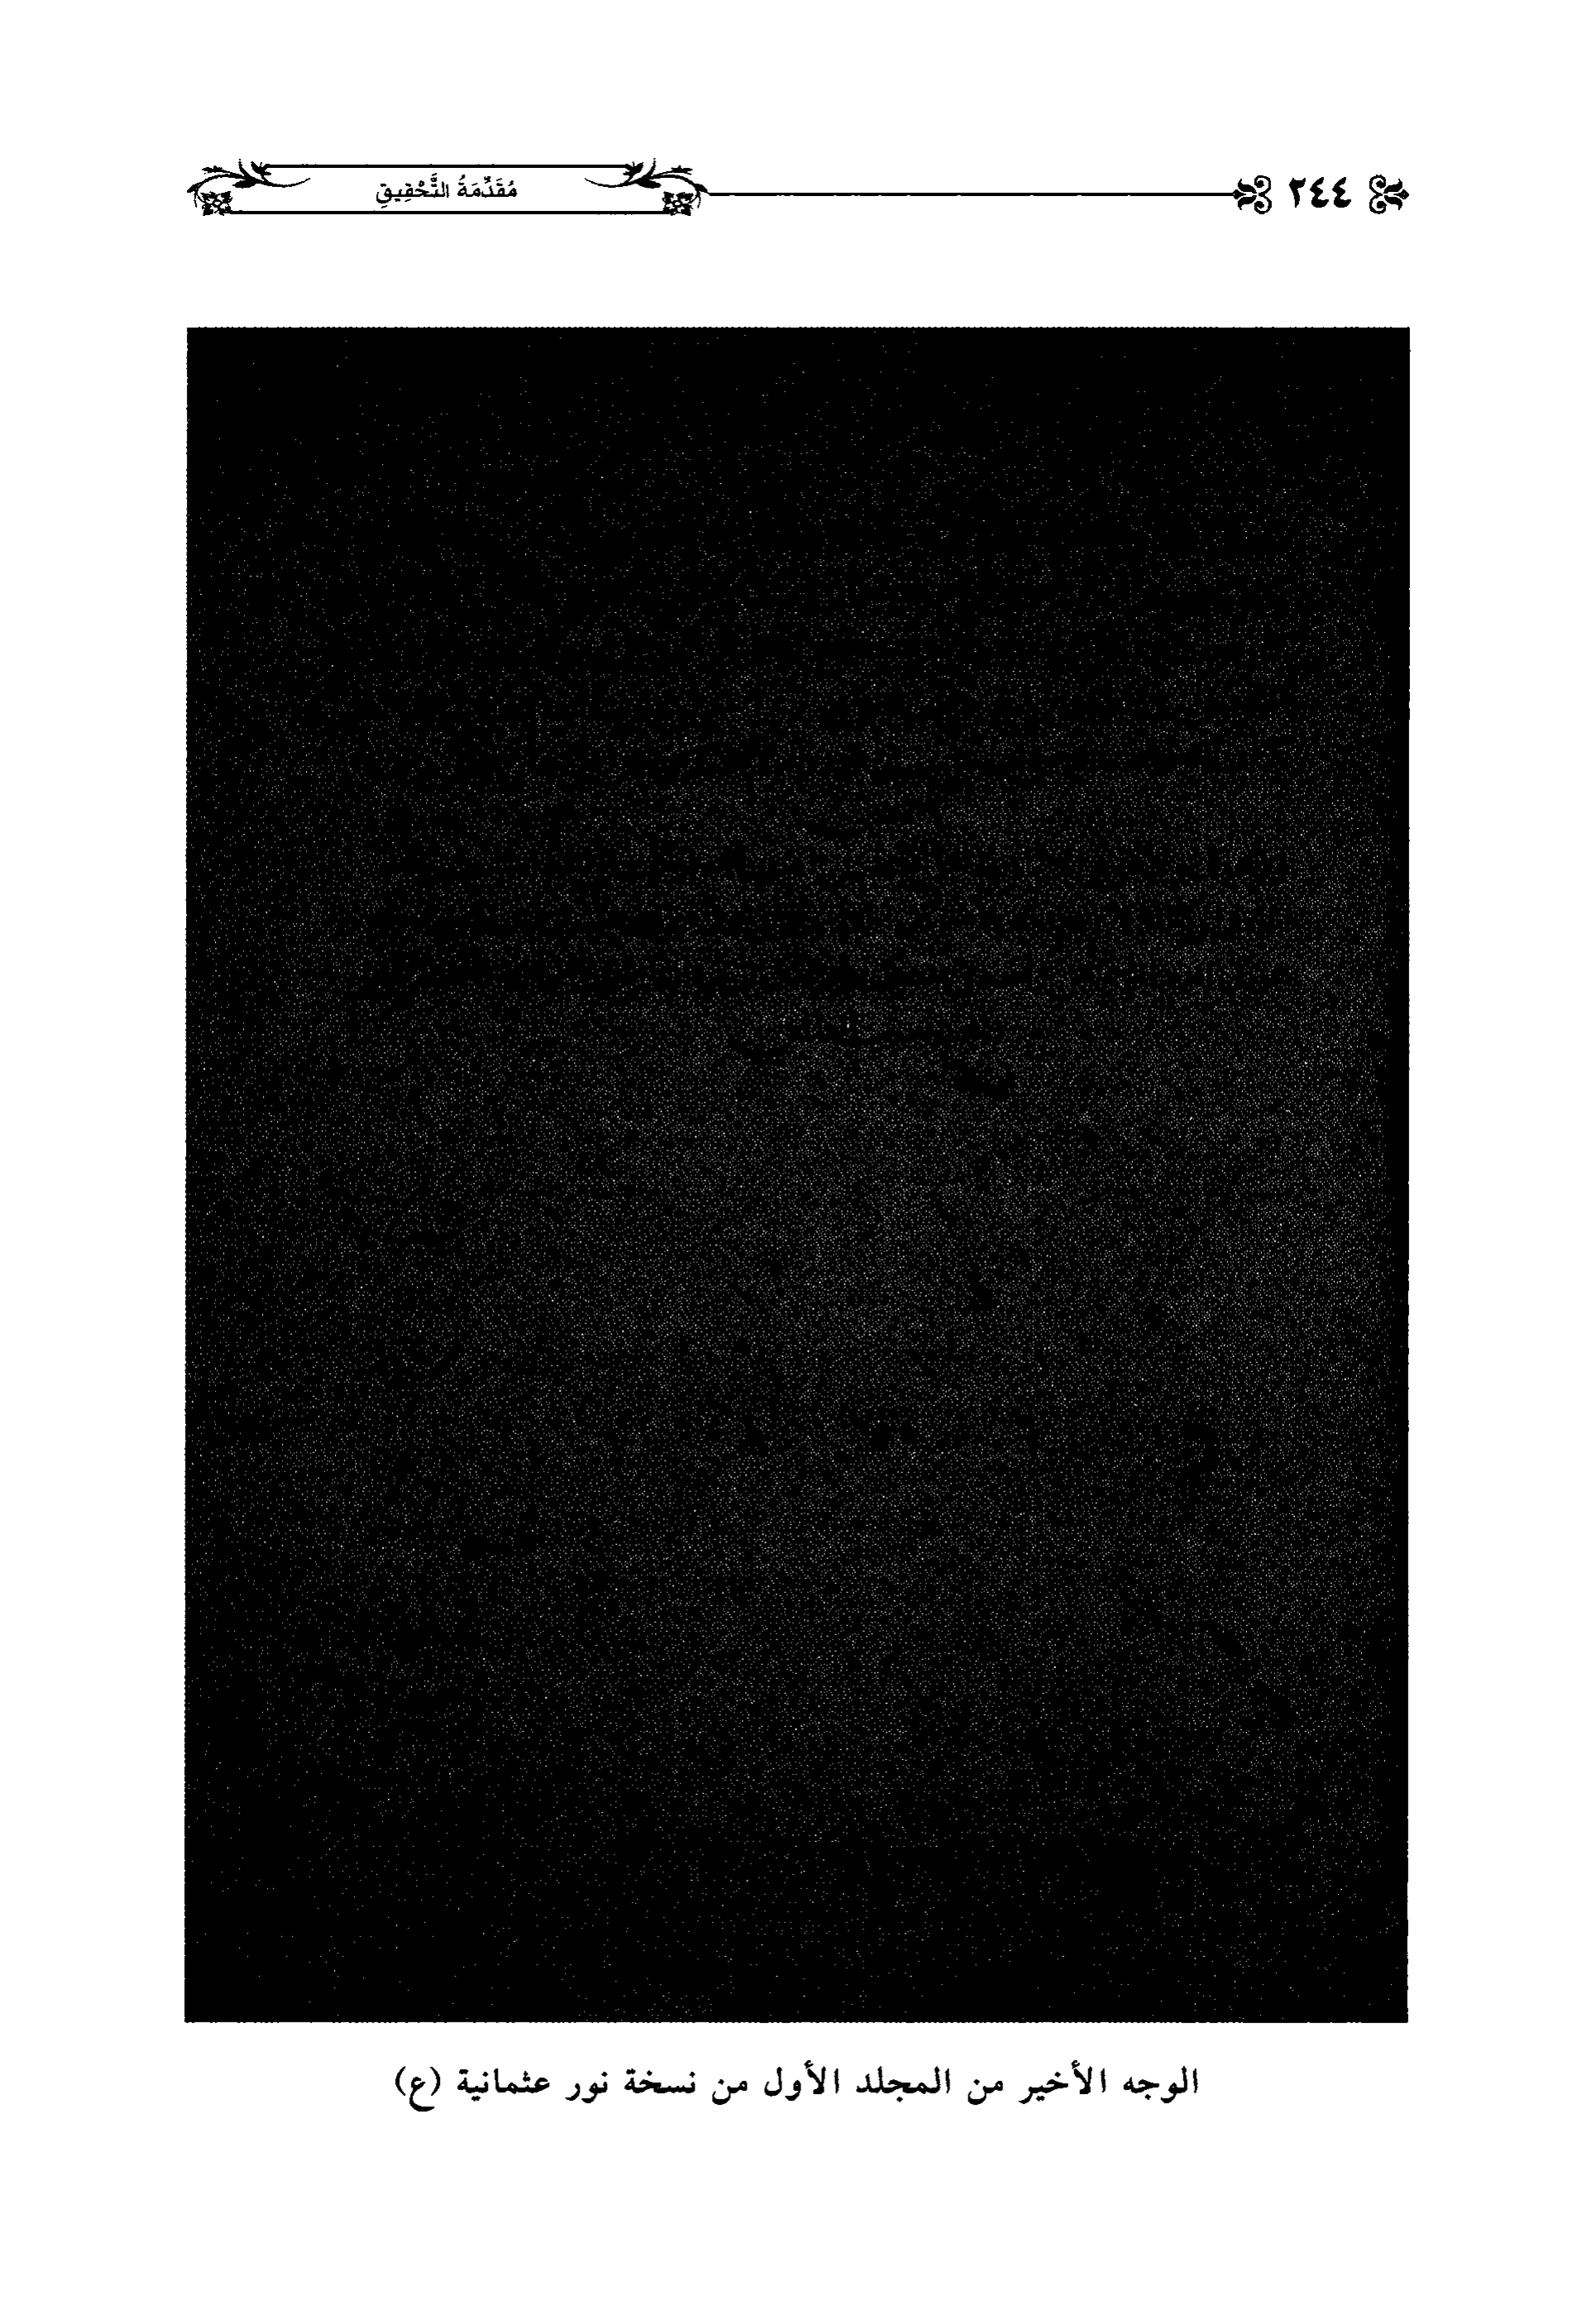 ٢٤٤
مُقَدِّمَةُ التَّحْقِيقِ
الوجه الأخير من المجلد الأول من نسخة نور عثمانية (ع)